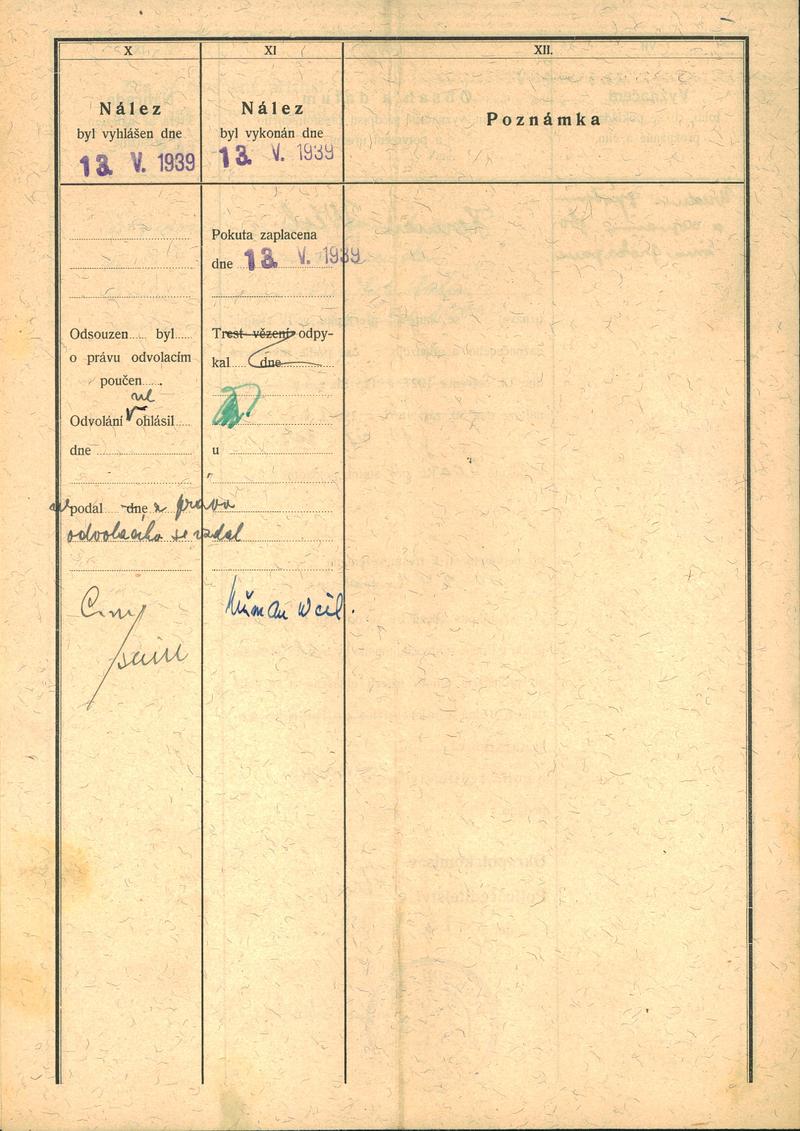 X
Nález
byl vyhlášen dne
13. V. 1939
odsouzen byl
o právu odvolacím
poučen
ne
Odvolání ohlásil
dne
podal dne a práva
odvolacího se vzdal
XI
Nález
byl vykonán dne
13. V. 1939
Pokuta zaplacena
dne 13. V. 1939
Trest vězení odpy-
kal dne
u
Weil.
XII.
Poznámka